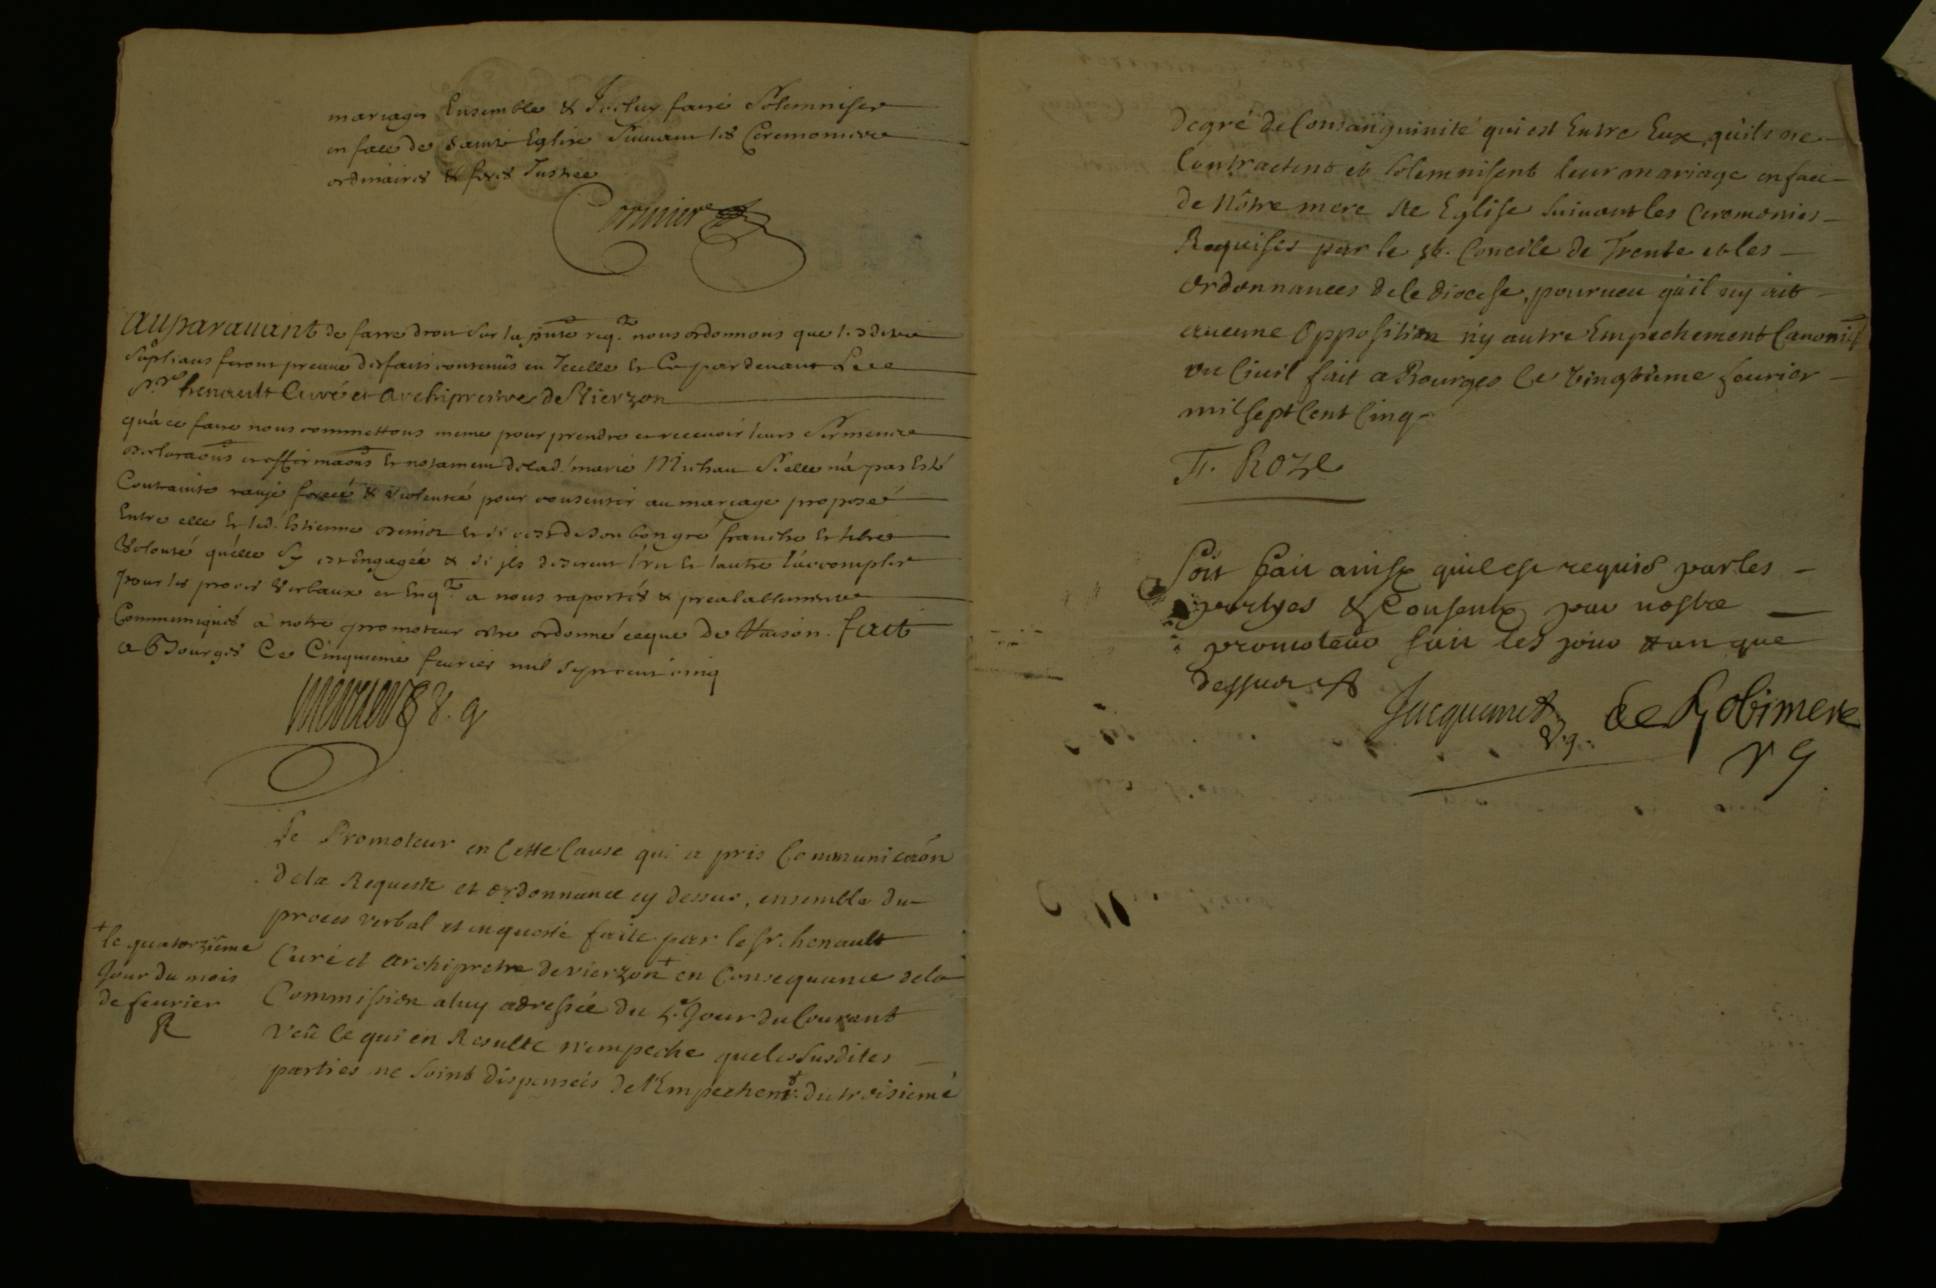 mariages Ensemble & Jceluy faire Solemniser
en face de Sainte Eglise Suivant les Ceremonies
ordinaires & feres Justice
Auparavant de faire droit sur la pnte reqte nous ordonnons que lesdits
Suplians feront preuve des faits contenüs en Jcelle & Ce pardevant Le
Sr henault Curé et Archiprestre de Vierzon
qu'à ce faire nous commettons meme pour prendre et recevoir leurs Sermens
declaraons et affirmaons & notamment de lad. marie Michau Si elle n'a pas Esté
Contrainte forcé & violentée pour consentir au mariage proposé
Entre elle & led. Estienne & si c'est de son bon gré franche & libre
Volonté qu'elle sy est Engagée & si jls desirent l'un & l'autre l'accomplir
pour les procés Verbaux et Enqte a nous raportés & prealablement
Communiqués a notre promoteur estre ordonné ceque de Raison. fait
a Bourges Ce Cinquieme fevrier mil sept cent cinq
v. g
Le Promoteur en Cette Cause qui a pris Communicaon
de la Requeste et ordonnance cy dessus, ensemble du
proces verbal et enqueste faite par le Sr. henault
Curé et archipretre de vierzon + en Consequance de la
Commission a luy adressée du 5e Jour du Courant
Veû Ce qui en Resulte n'empeche que les susdites
parties ne soint dispensées de l'Empechemt. du troisieme
+ le quatorzième
Jour du mois
de fevrier
R
degré de Consanguinité qui est Entre Eux, qu'ils ne
Contractent et solemnisent leur mariage en face
de Nôtre mere Ste Eglise suivant les Ceremonies
Requises par le St. Concile de Trente et les
ordonnances de Ce diocese, pourveu qu'il ny ait
aucune Opposition n'y autre Empechement Canoniq
ou Civil fait a Bourges Ce vingtieme fevrier
mil sept Cent Cinq
F. Roze
Soit fait ainsy quil est requis par les
partyes & Consenty par nostre
promoteur fait les jour & an que
dessus
Jacquemet
v. g. de Gobimere
v g